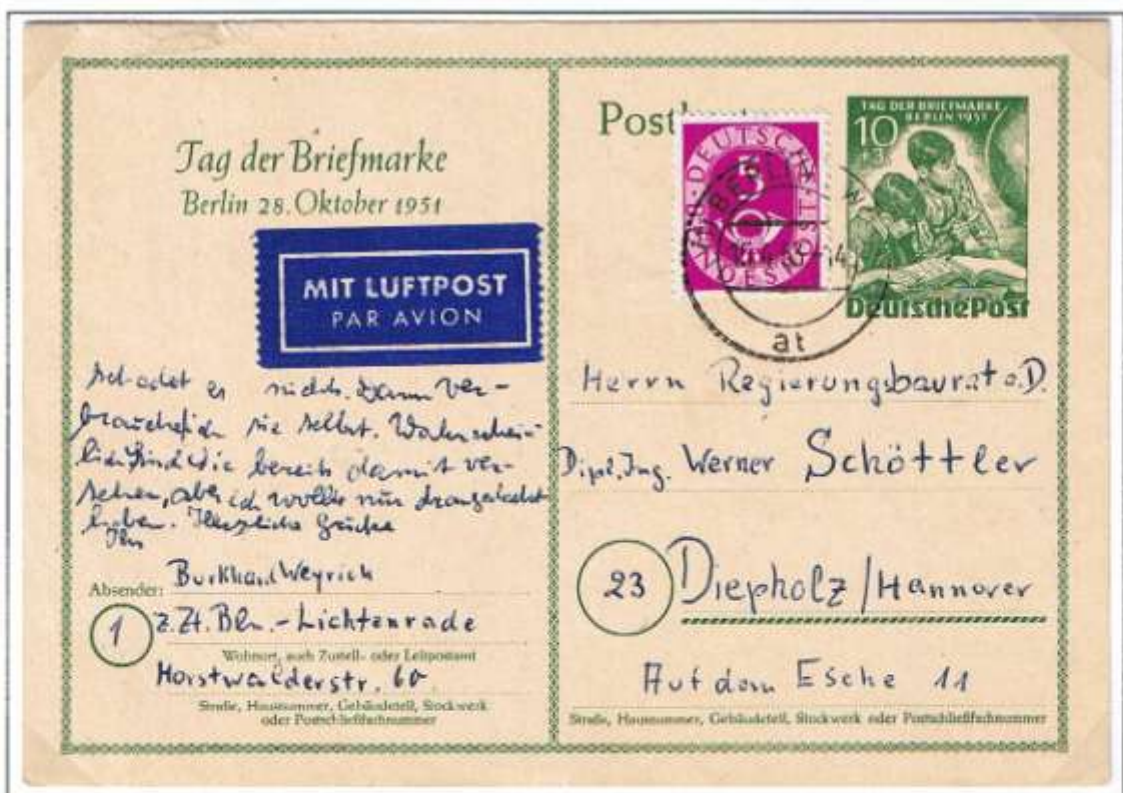 Tag der Briefmarke
Berlin 28. Oktober 1951
MIT LUFTPOST
PAR AVION
schadet es nichts. Dann ver-
brauche ich sie selbst. Wahrschein-
lich sind Sie bereits damit ver-
sehen, aber ich wollte nur drangedacht
haben. Herzliche Grüsse
Ihr
Absender: Burkhard Weyrich
1 z.Zt. Bln.-Lichtenrade
Wohnort, auch Zustell- oder Leitpostamt
Horstwalderstr. 60
Straße, Hausnummer, Gebäudeteil, Stockwerk
oder Postschließfachnummer
Post
DEUTSCHE BUNDESPOST
5
BERLIN W
at
TAG DER BRIEFMARKE
BERLIN 1951
10
+3
Deutsche Post
Herrn Regierungsbaurat a.D.
Dipl. Ing. Werner Schöttler
23 Diepholz / Hannover
Auf dem Esche 11
Straße, Hausnummer, Gebäudeteil, Stockwerk oder Postschließfachnummer